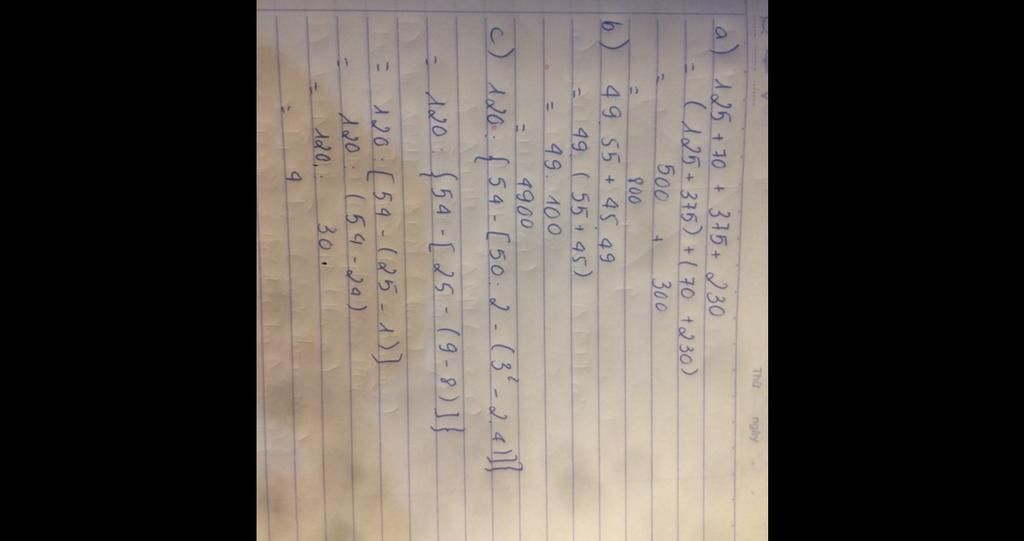 Thứ ngày
a) 125 + 70 + 375 + 230
= (125 + 375) + (70 + 230)
= 500 + 300
= 800
b) 49. 55 + 45. 49
= 49. (55 + 45)
= 49. 100
= 4900
c) 120 : {54 - [50 : 2 - (3² - 2. 4)]}
= 120 : {54 - [25 - (9 - 8)]}
= 120 : [54 - (25 - 1)]
= 120 : (54 - 24)
= 120 : 30
= 4